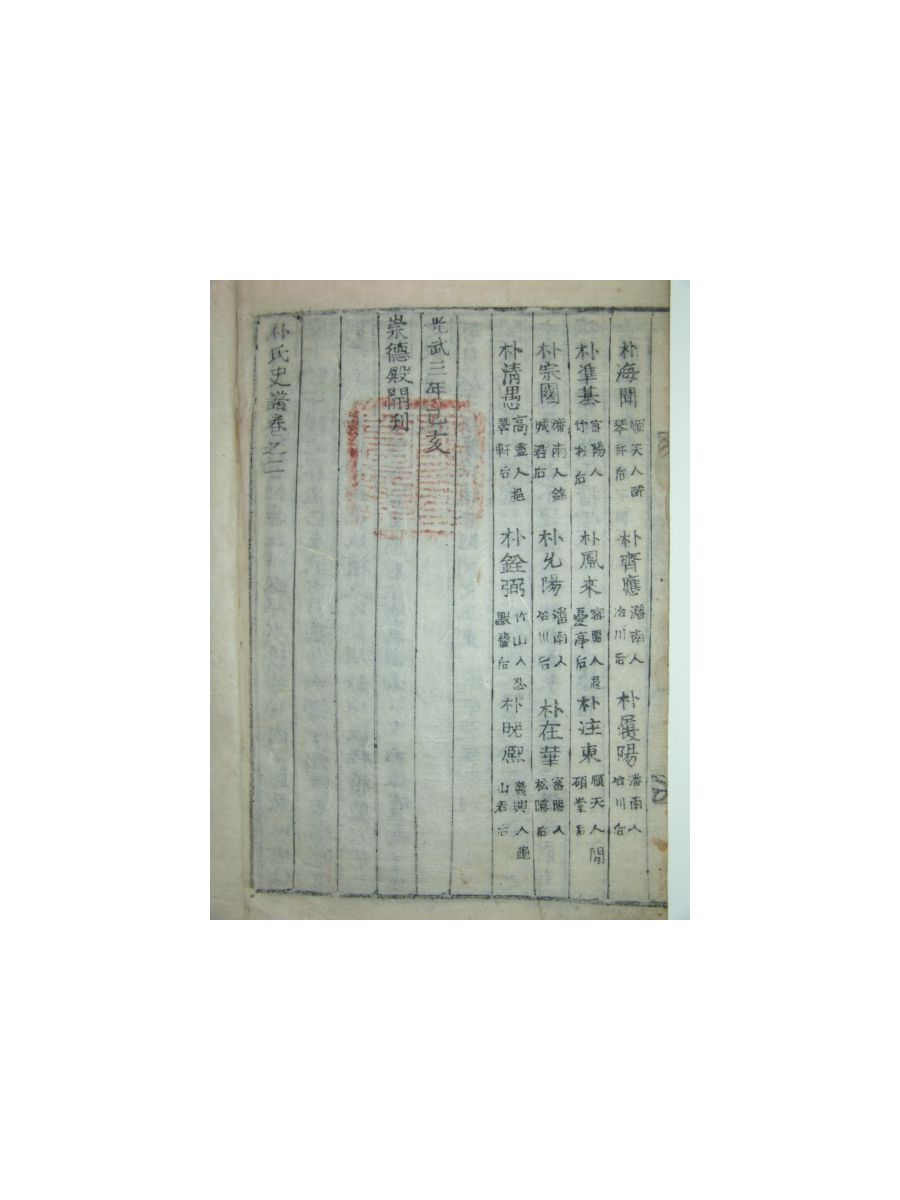 朴海聞 順天人醉琴軒后 朴齊應 潘南人冶川后 朴履陽 潘南人冶川后
朴準基 富陽人竹村后 朴鳳來 密陽人退憂亭后 朴注東 順天人閒碩堂后
朴宗國 潘南人錦城君后 朴允陽 潘南人冶川后 朴在華 富陽人松隱后
朴清愚 高靈人挹翠軒后 朴銓弼 竹山人忍默齋后 朴晄熙 義興人龜山君后
光武三年己亥
崇德殿開刊
朴氏史譜卷之二